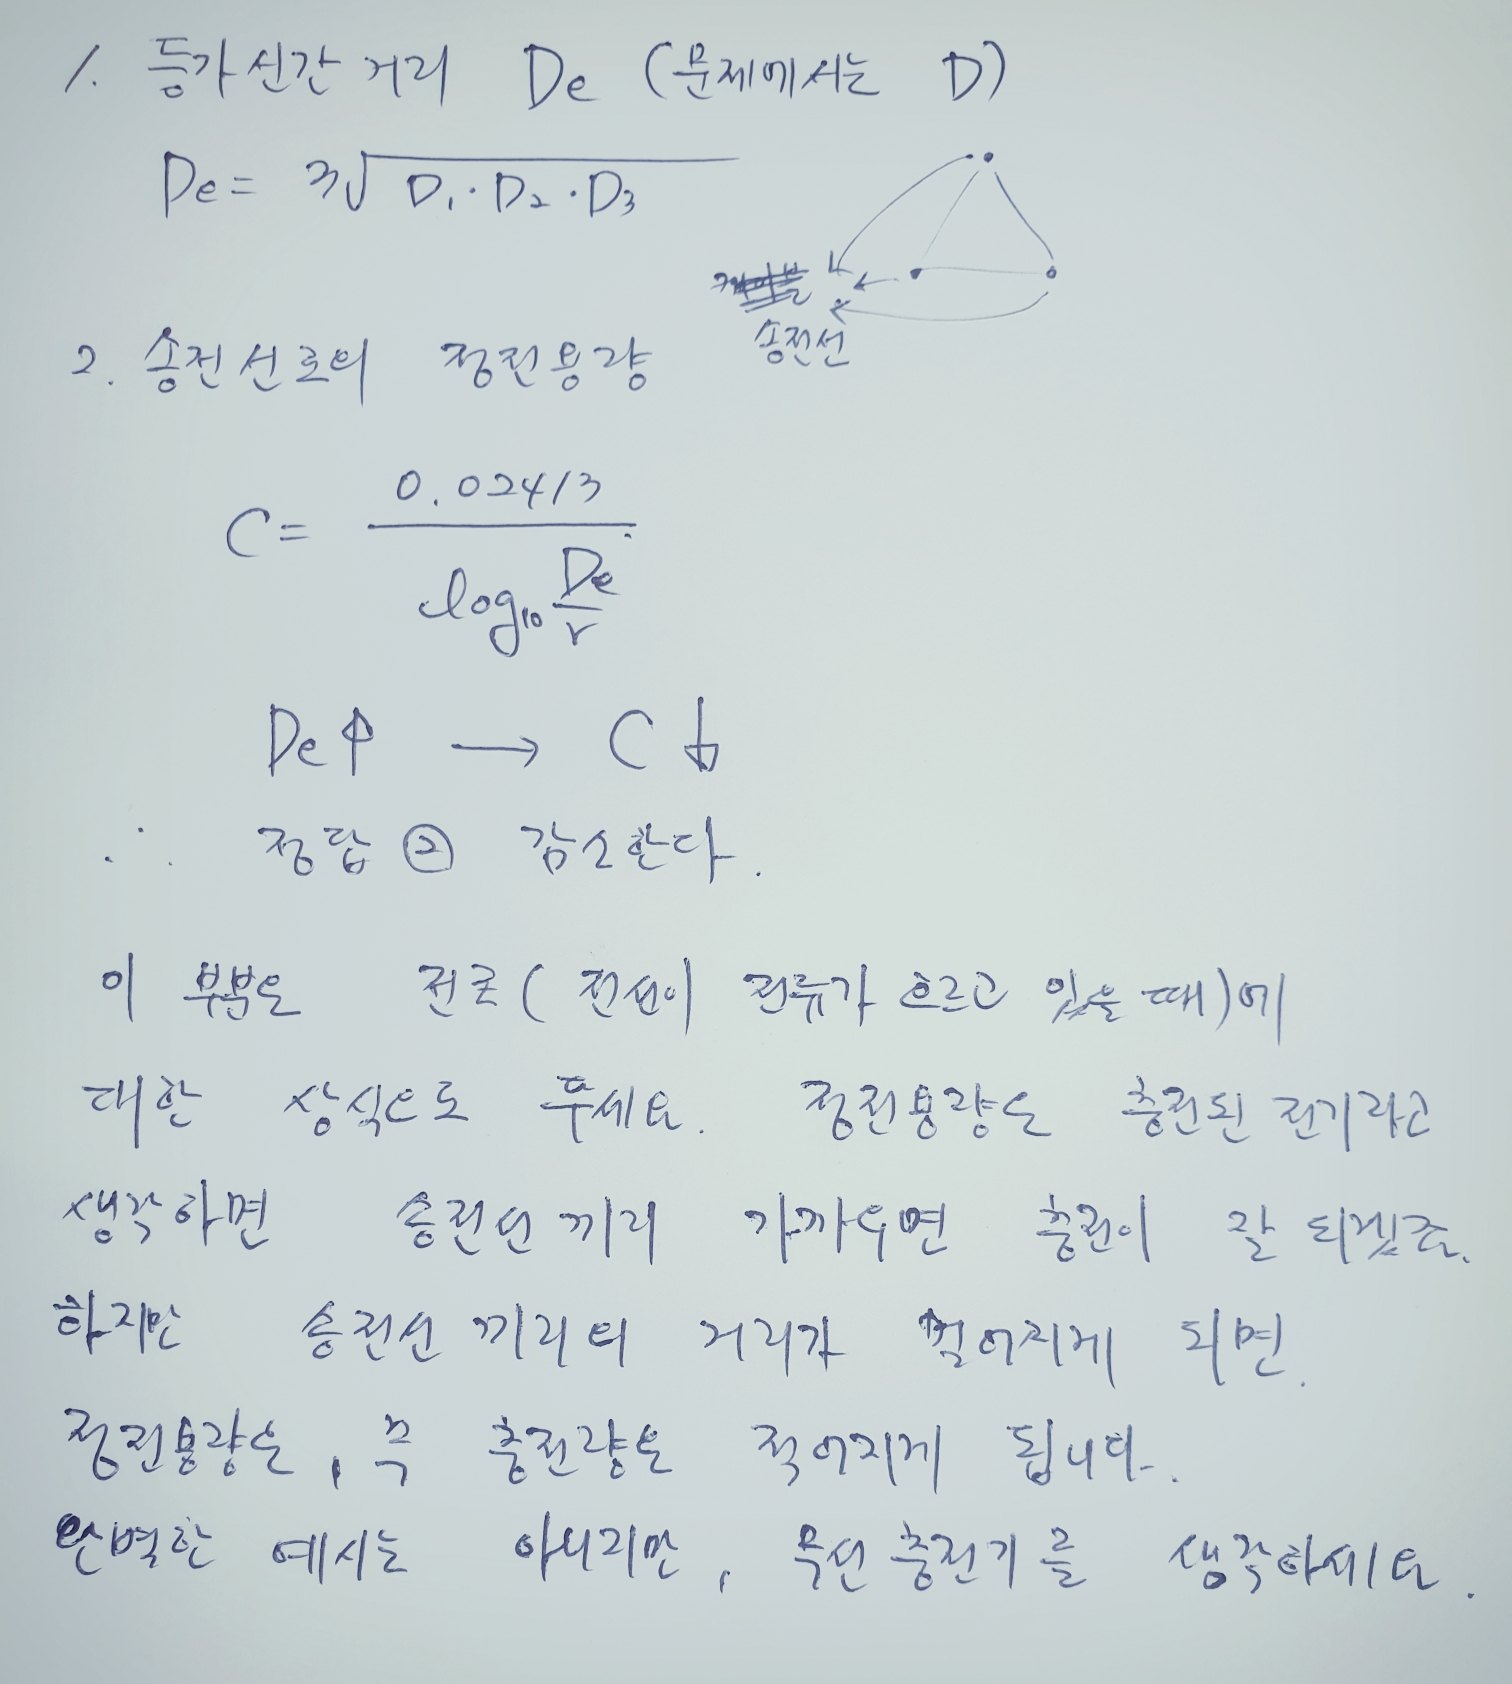 1. 등가선간 거리 De (문제에서는 D)
De = 3√D1·D2·D3
송전선
2. 송전선로의 정전용량
C = 0.02413 / log10 De/r
De↑ → C↓
∴ 정답 ② 감소한다.
이 부분은 전선이 전류가 흐르고 있을 때)에
대한 상식으로 푸세요. 정전용량을 충전된 전기라고
생각하면 송전선 끼리 가까우면 충전이 잘 되겠죠.
하지만 송전선 끼리의 거리가 멀어지게 되면.
정전용량은, 즉 충전량은 적어지게 됩니다.
완벽한 예시는 아니지만, 무선충전기를 생각하세요.